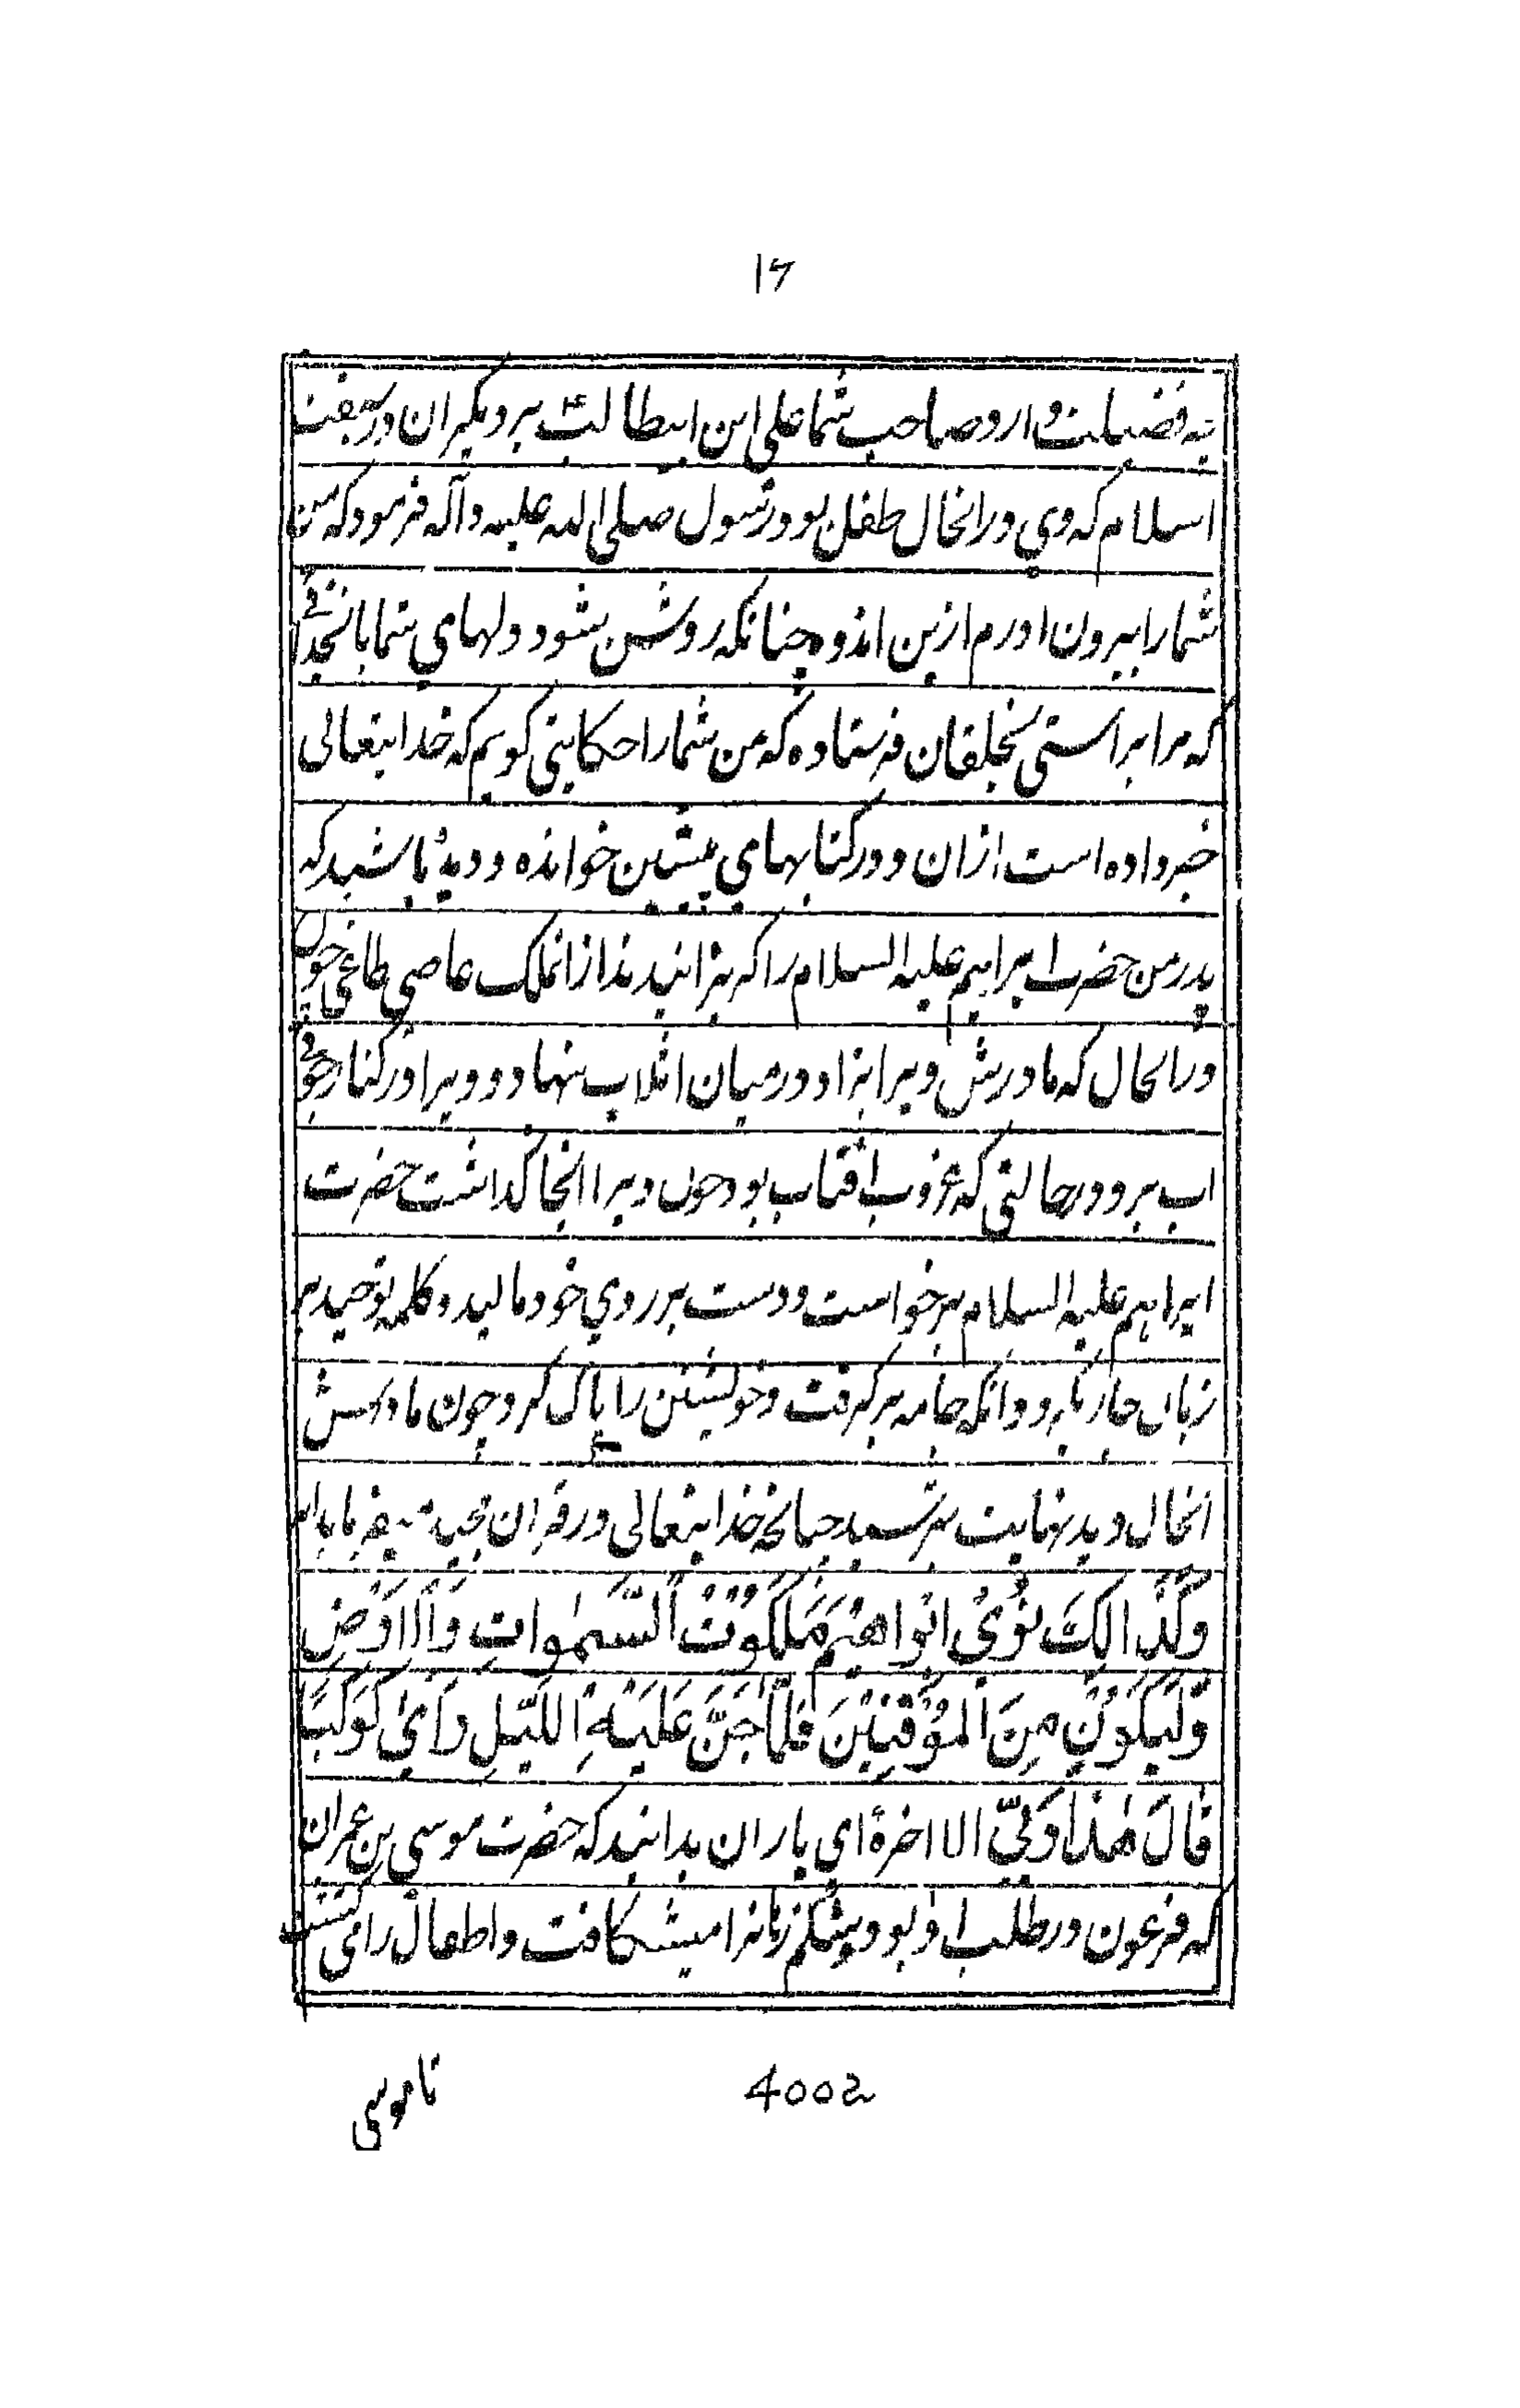 ۱۶
چه فضیلت دارد صاحب شما علی ابن ابیطالب بر دیگران در سبقت
اسلام که وی در انحال طفل بود رسول صلی الله علیه وآله فرمود که من
شما را بیرون اورم ازین اندوه چنانکه روشن شود دلهای شما بانخدائی
که مرا براستی بخلقان فرستاده که من شما را حکایتی گویم که خدایتعالی
خبر داده است ازان و در کتابهای پیشین خوانده و دیده باشید که
پدر من حضرت ابراهیم علیه السلام را که بزانیدند از انملک عاصی طاغی چون
در انحال که مادرش ویرا بزاد در میان اثلاب نهاد و ویرا در کنار جوئی
اب برد در حالتی که غروب افتاب بود چون ویرا انجا گذاشت حضرت
ابراهیم علیه السلام برخواست و دست بر روی خود مالید و کلمه توحید بر
زبان جاری کرد و انکه جامه بر گرفت و خویشتن را پاک کرد چون مادرش
انحال دید بنهایت بترسید چنانچه خدایتعالی در قران مجید میفرماید
وَكَذَالِكَ نُرِي اِبْرَاهِيْمَ مَلَكُوْتَ السَّمٰوَاتِ وَالْاَرْضِ
وَلِيَكُوْنَ مِنَ الْمُوْقِنِيْنَ فَلَمَّا جَنَّ عَلَيْهِ اللَّيْلِ رَاٰي كَوْكَبًا
قَالَ هٰذَا رَبِّي الا اخرهٔ ای یاران بدانید که حضرت موسی بن عمران
که فرعون در طلب او بود و شکم زنانرا میشکافت و اطفال را می کشت
تا موسی
4002